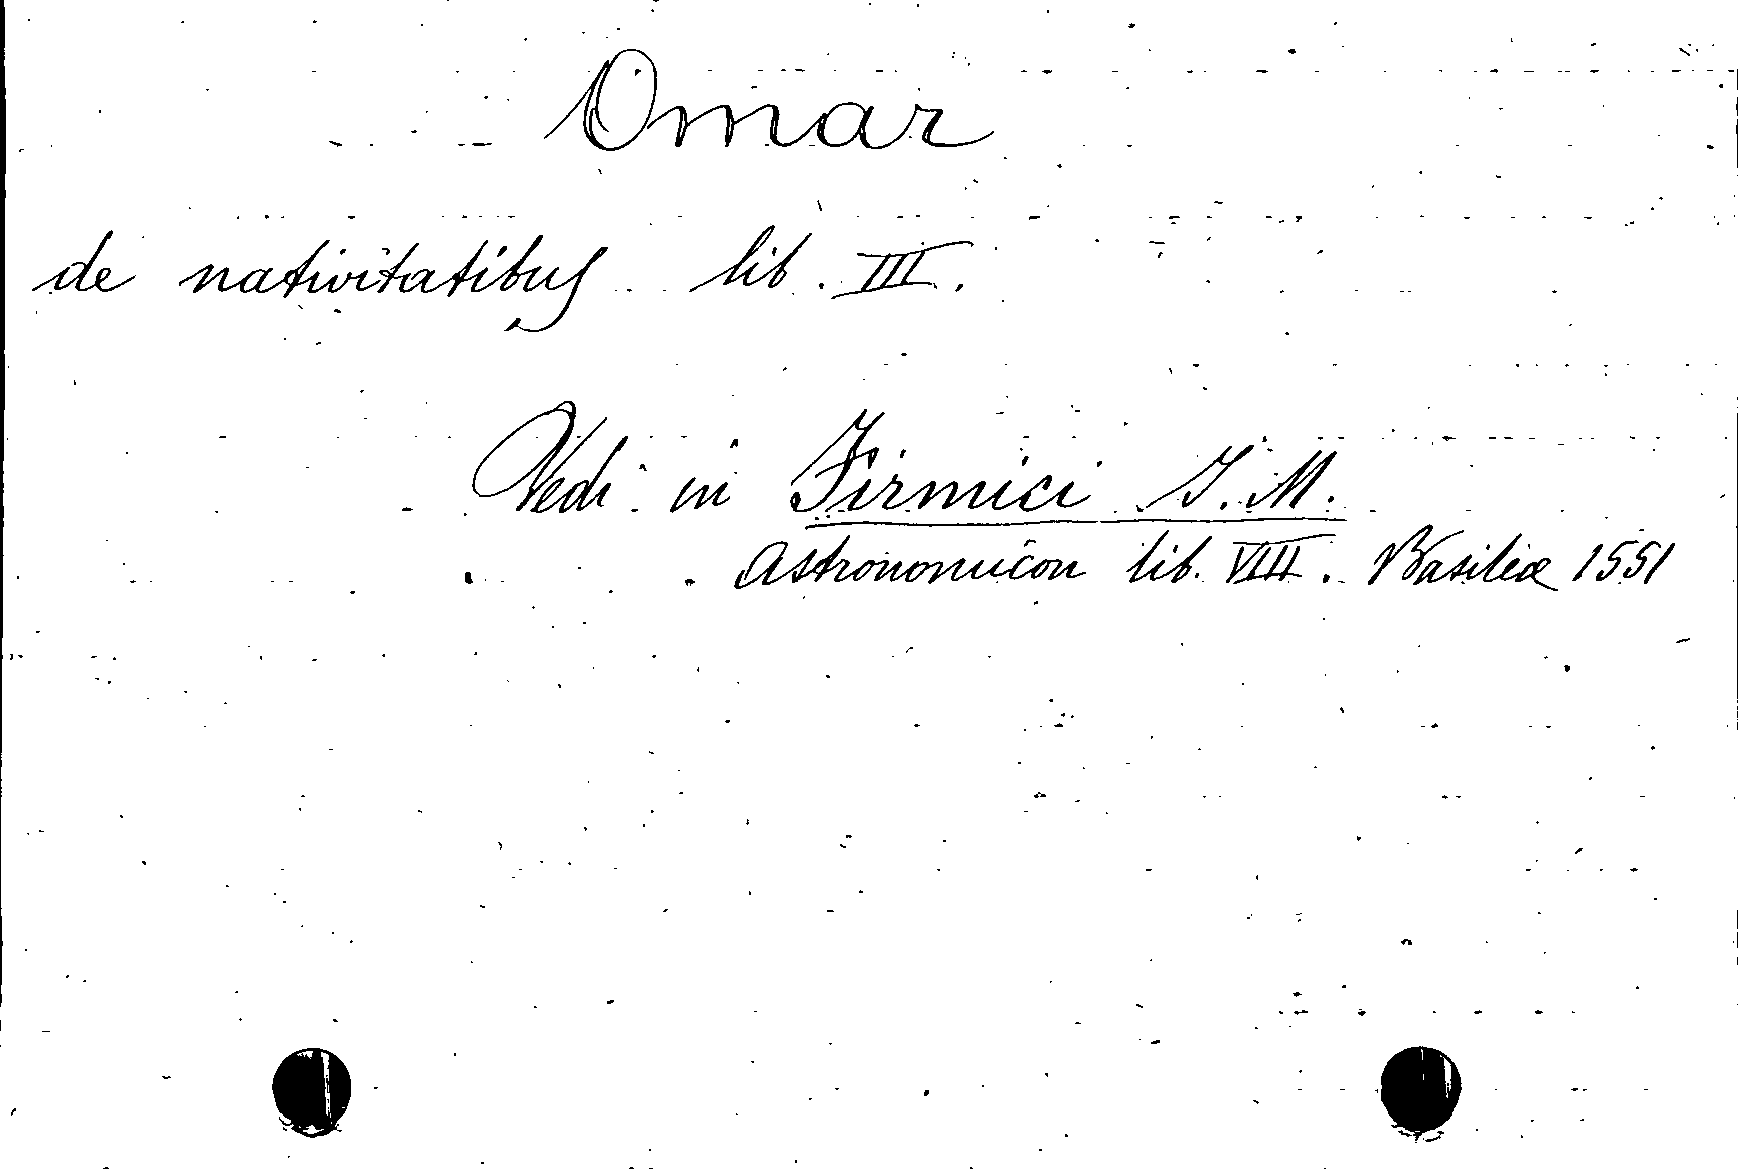 Omar
de nativitatibus lib. III.
Vedi in Firmici J. M.
Astronomicon lib. VIII. Basileæ 1551